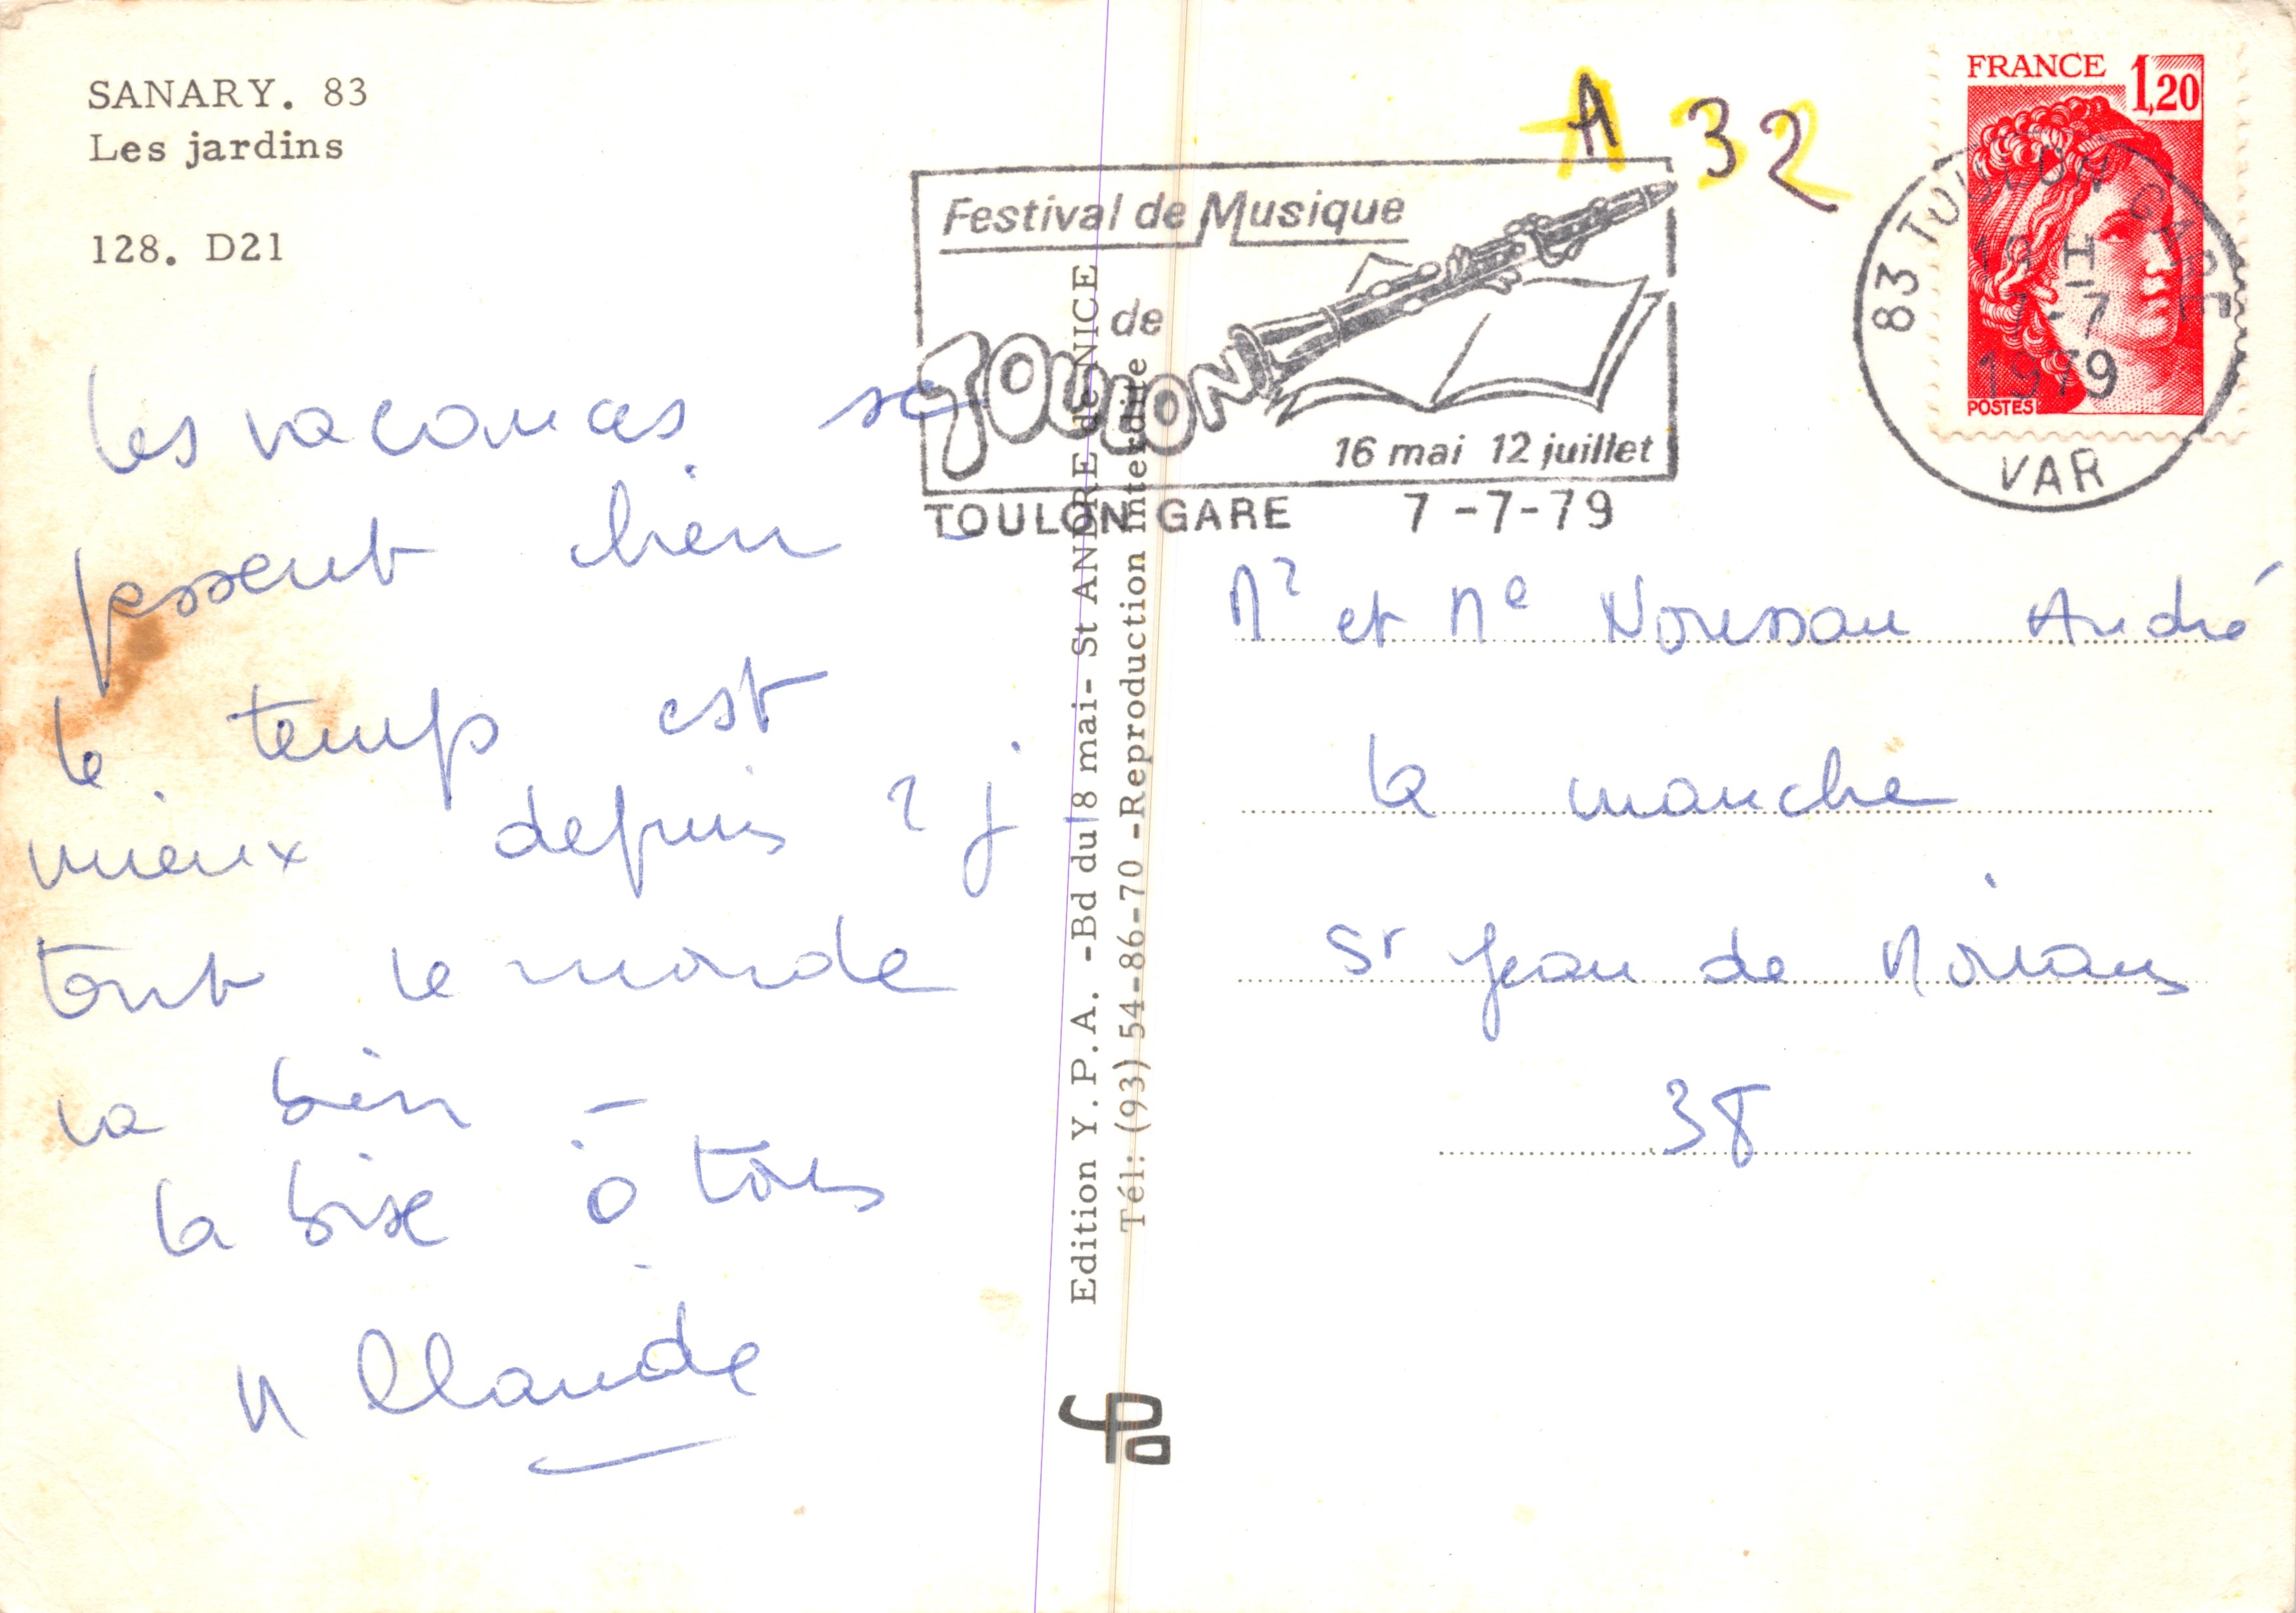 SANARY. 83
Les jardins
128. D21
Les vacances se
passent bien
le temps est
mieux depuis 2 j
tout le monde
va bien -
la bise à tous
M Claude
Edition Y.P.A. -Bd du 8 mai- St ANDRE de NICE
Tél: (93) 54-86-70 -Reproduction interdite
A 32
Festival de Musique
de
TOULON
16 mai 12 juillet
TOULON GARE 7-7-79
FRANCE 1,20
POSTES
83 TOULON GARE
H
7-7
1979
VAR
Mr et Me André
la manche
St Jean de Moirans
38